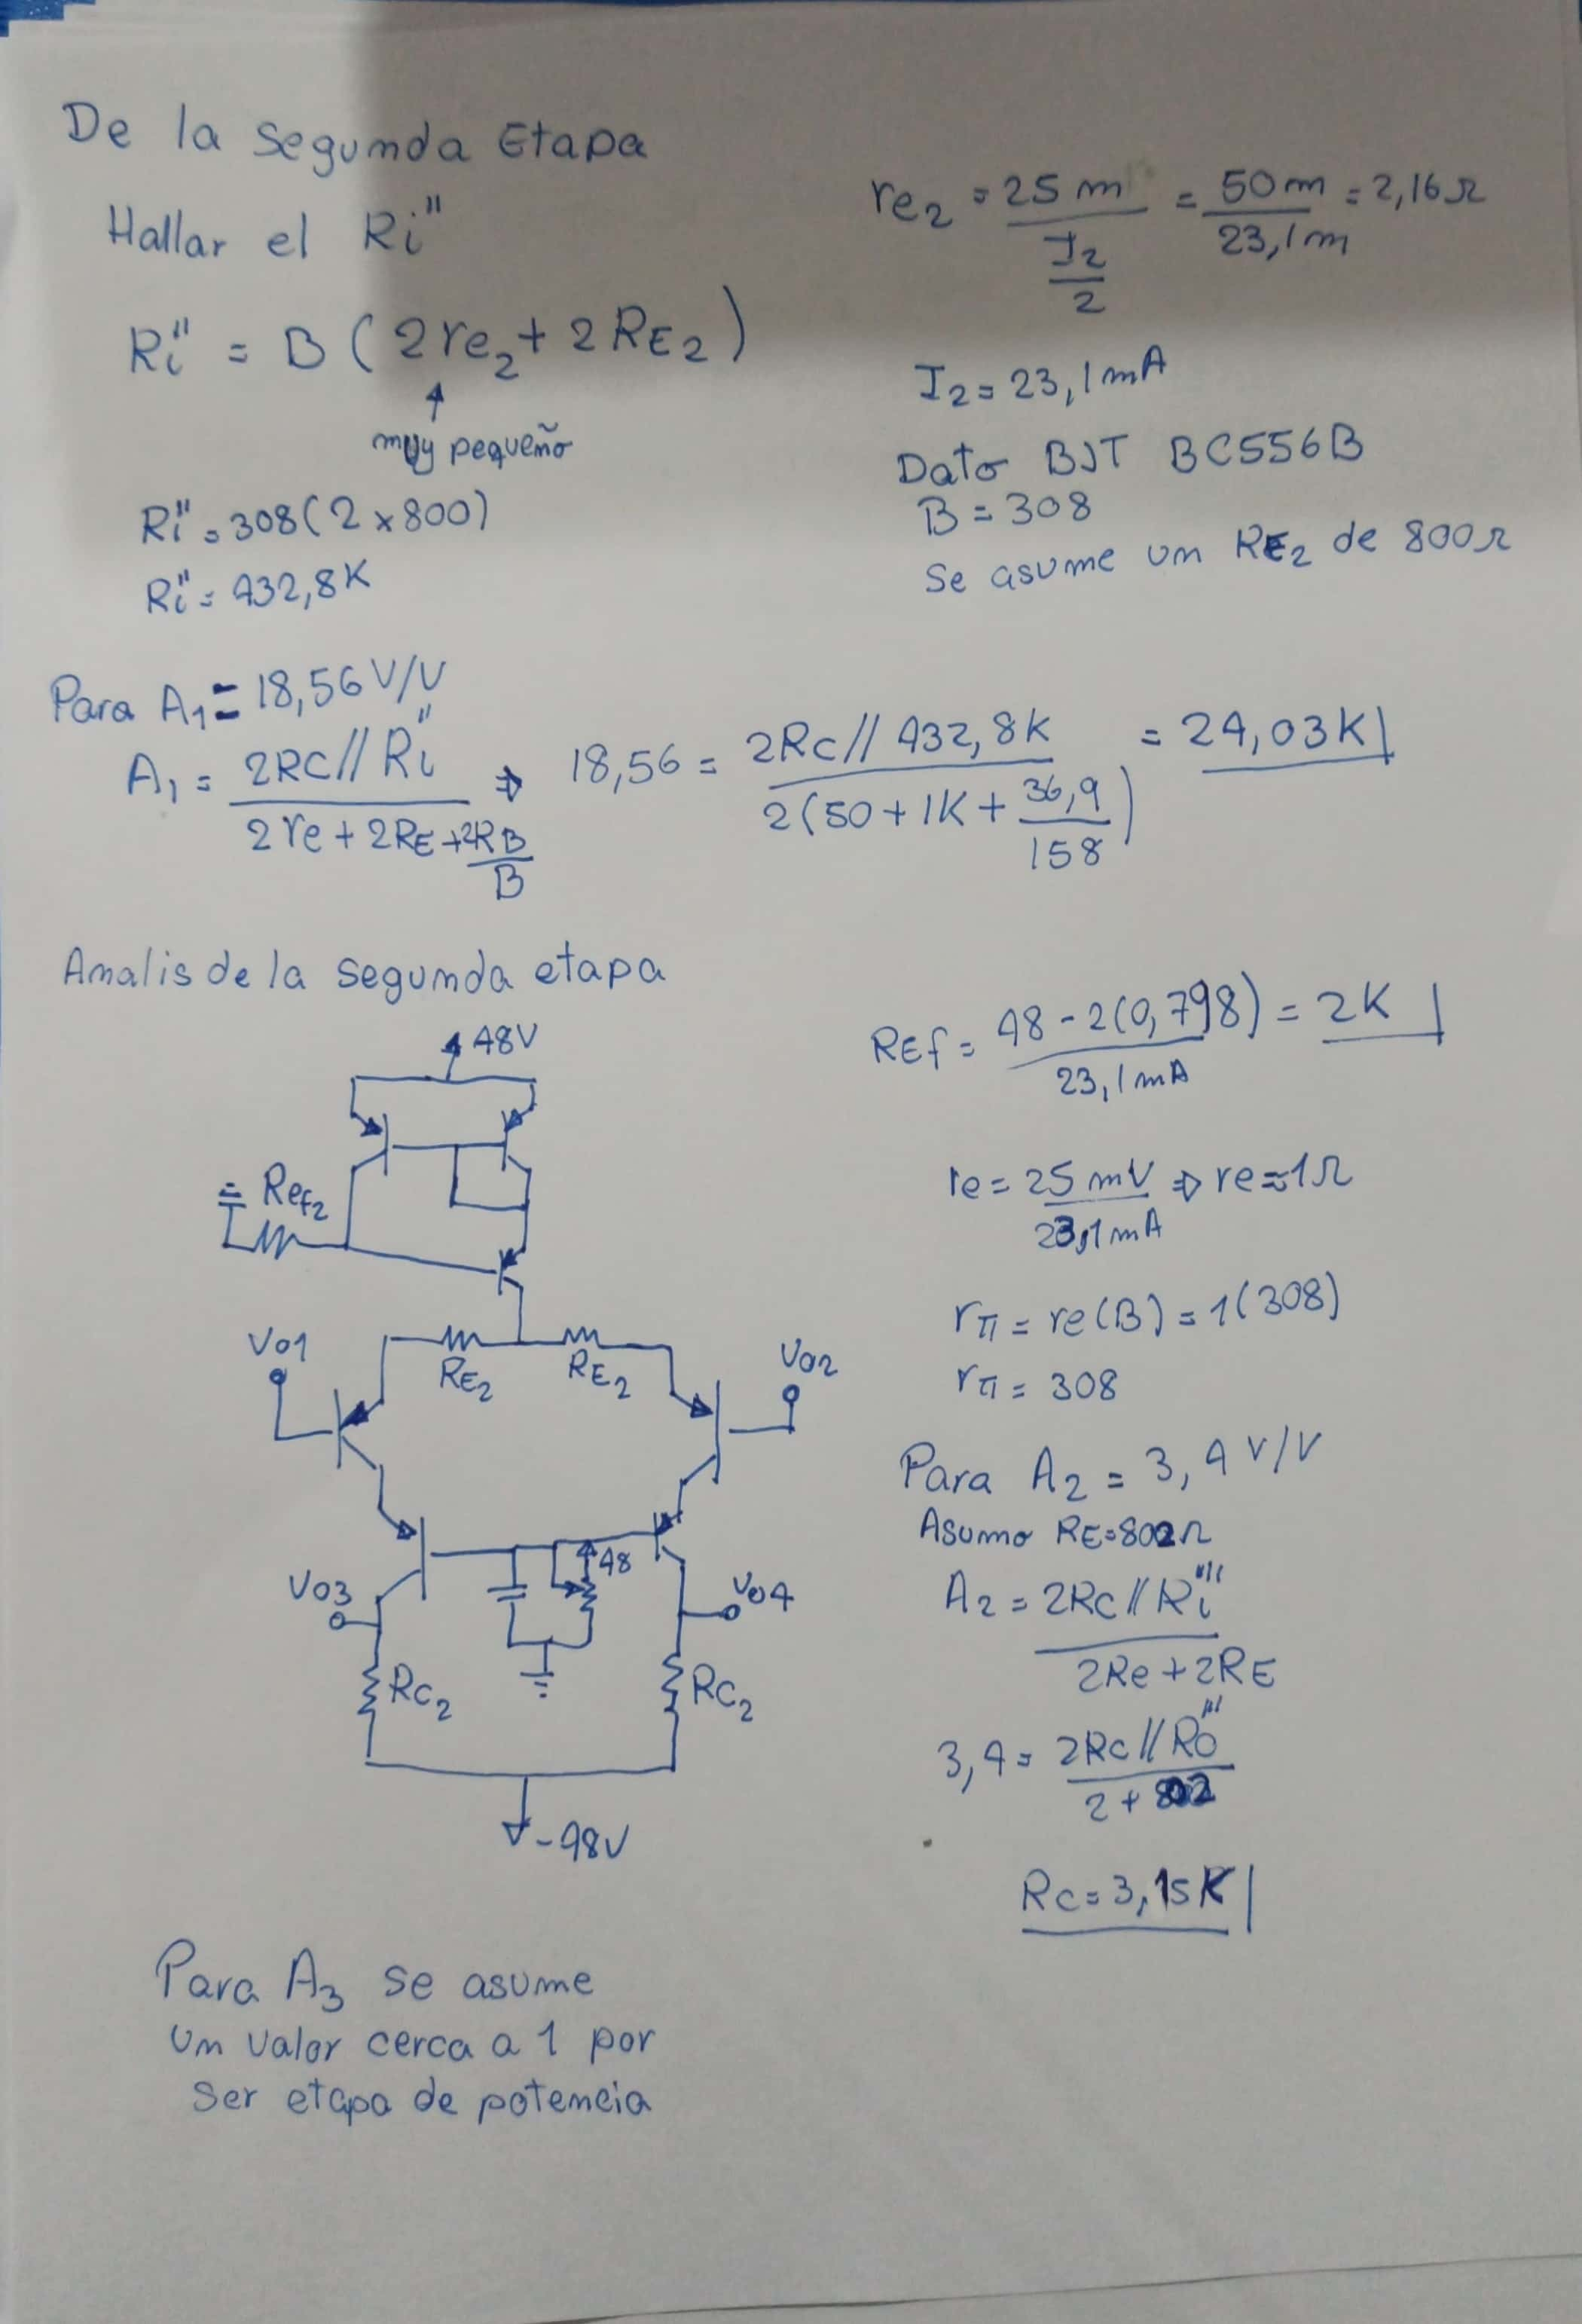 De la Segunda Etapa
Hallar el Ri"
Ri" = B (2re2 + 2RE2)
muy pequeño
Ri" = 308(2x800)
Ri" = 432,8K
re2 = 25m / (I2/2) = 50m / 23,1m = 2,16Ω
I2 = 23,1mA
Dato BJT BC556B
B = 308
Se asume un RE2 de 800Ω
Para A1 = 18,56 V/V
A1 = 2RC//Ri" / (2re + 2RE + 2RB/B) ⇒ 18,56 = 2Rc//432,8K / 2(50+1K+36,9/158) = 24,03K
Analis de la segunda etapa
48V
Ref2
Vo1
RE2
RE2
Vo2
48
Vo3
Vo4
RC2
RC2
-48V
REf = 48-2(0,798) / 23,1mA = 2K
re = 25mV / 23,1mA ⇒ re≈1Ω
rπ = re(B) = 1(308)
rπ = 308
Para A2 = 3,4 V/V
Asumo RE=802Ω
A2 = 2Rc//Ri''' / (2Re+2RE)
3,4 = 2Rc//Ro''' / (2+802)
Rc = 3,15K
Para A3 se asume
un valor cerca a 1 por
ser etapa de potencia